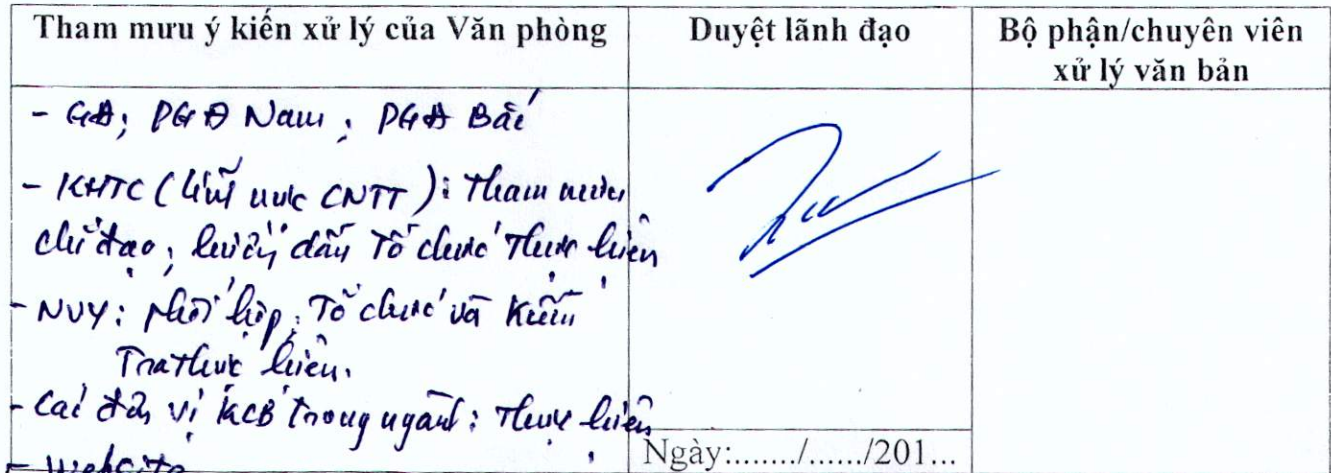 Tham mưu ý kiến xử lý của Văn phòng
Duyệt lãnh đạo
Bộ phận/chuyên viên
xử lý văn bản
- GĐ; PGĐ Nam; PGĐ Bắc
- KHTC (lĩnh vực CNTT): Tham mưu
chỉ đạo, hướng dẫn Tổ chức Thực hiện
- NVY: phối hợp, Tổ chức và Kiểm
Tra thực hiện.
- Các đơn vị KCB trong ngành: Thực hiện
- Website
Ngày:......./....../201...